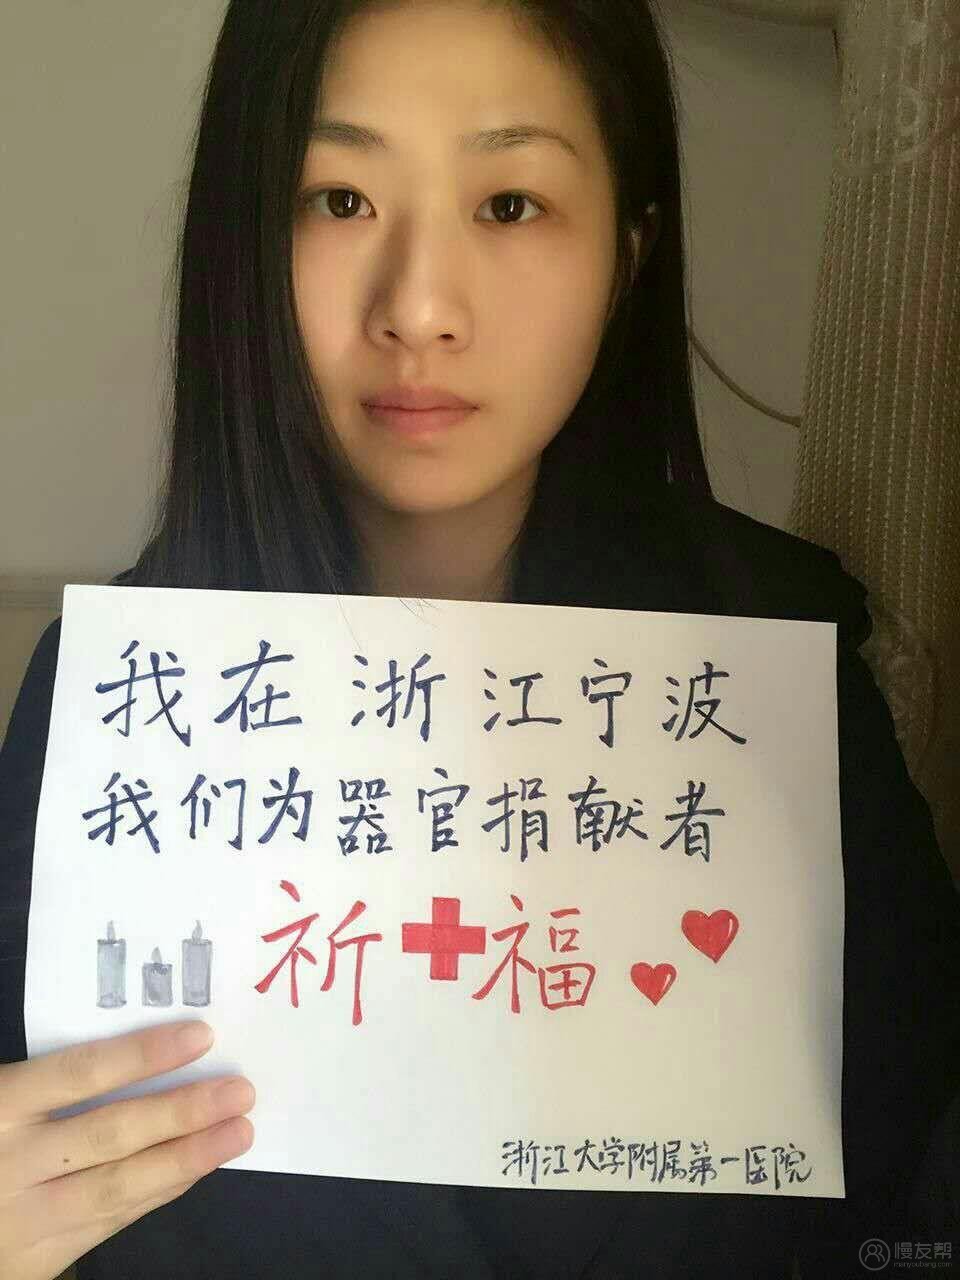 我在浙江宁波
我们为器官捐献者
祈福
浙江大学附属第一医院
慢友帮
manyoubang.com